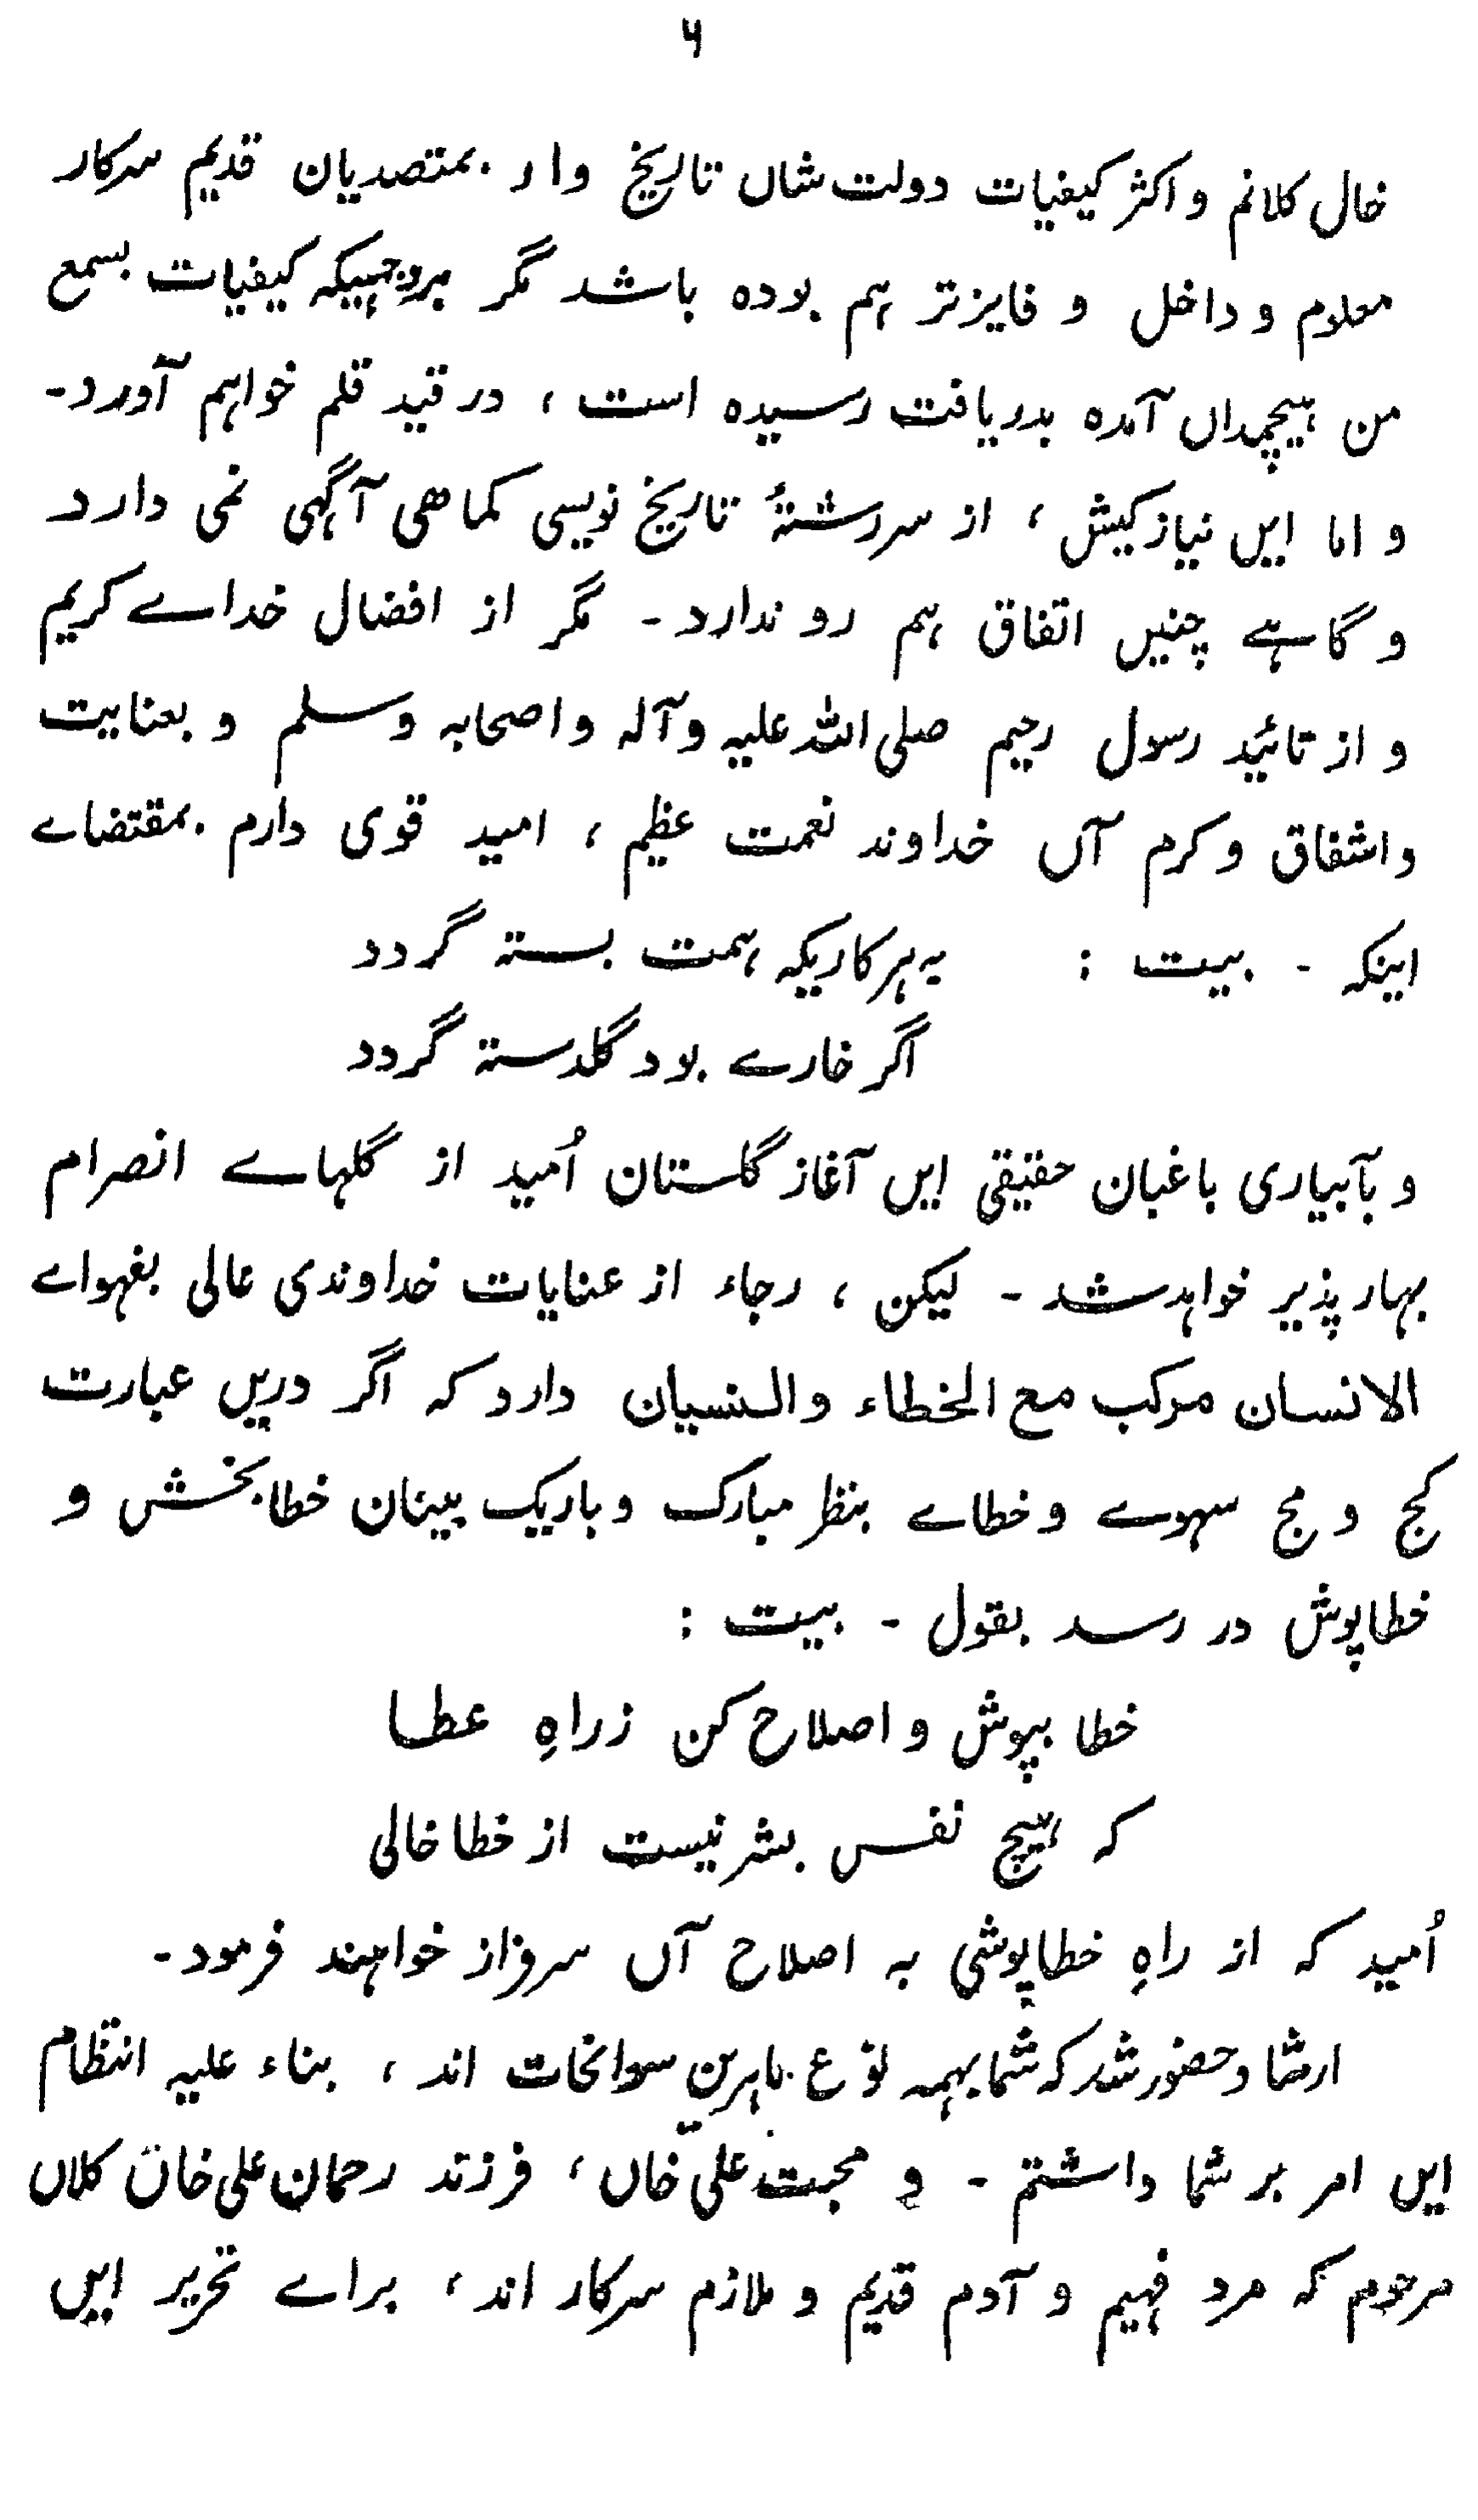 ۶
خال کلانم و اکثر کیفیات دولت شاں تاریخ وار بمتصدیان قدیم سرکار
معلوم و داخل و فایزتر ہم بودہ باشد مگر بروجہیکہ کیفیات بسمع
من ہیچمداں آمدہ بدریافت رسیدہ است، در قید قلم خواہم آورد۔
و اما ایں نیازکیش، از سررشتۂ تاریخ نویسی کماھی آگہی نمی دارد
و گاہے چنیں اتفاق ہم رو ندارد۔ مگر از افضال خداے کریم
و از تائید رسول رحیم صلی اللہ علیہ وآلہ واصحابہ وسلم و بعنایت
واشفاق وکرم آں خداوند نعمت عظیم، امید قوی دارم بمقتضاے
اینکہ ۔ بیت : بہ ہر کاریکہ ہمت بستہ گردد
اگر خارے بود گلدستہ گردد
و بآبیاری باغبان حقیقی ایں آغاز گلستان اُمید از گلہاے انصرام
بہار پذیر خواہد شد ۔ لیکن، رجاء از عنایات خداوندی عالی بفہواے
الانسان مرکب مع الخطاء والنسیان دارد کہ اگر دریں عبارت
کج و مج سہوے و خطاے بنظر مبارک و باریک بینان خطابخش و
خطاپوش در رسد بقول ۔ بیت :
خطا بپوش و اصلاح کن ز راہِ عطا
کہ ہیچ نفس بشر نیست از خطا خالی
اُمید کہ از راہِ خطاپوشی بہ اصلاح آں سرفراز خواہند فرمود۔
ارشاد حضور شد کہ شما بہمہ نوع ماہرین سوانحات اند، بناء علیہ انتظام
ایں امر بر شما داشتم ۔ و محبت علی خاں، فرزند رحمان علی خان کلاں
مرحوم کہ مرد فہیم و آدم قدیم و ملازم سرکار اند، براے تحریر ایں